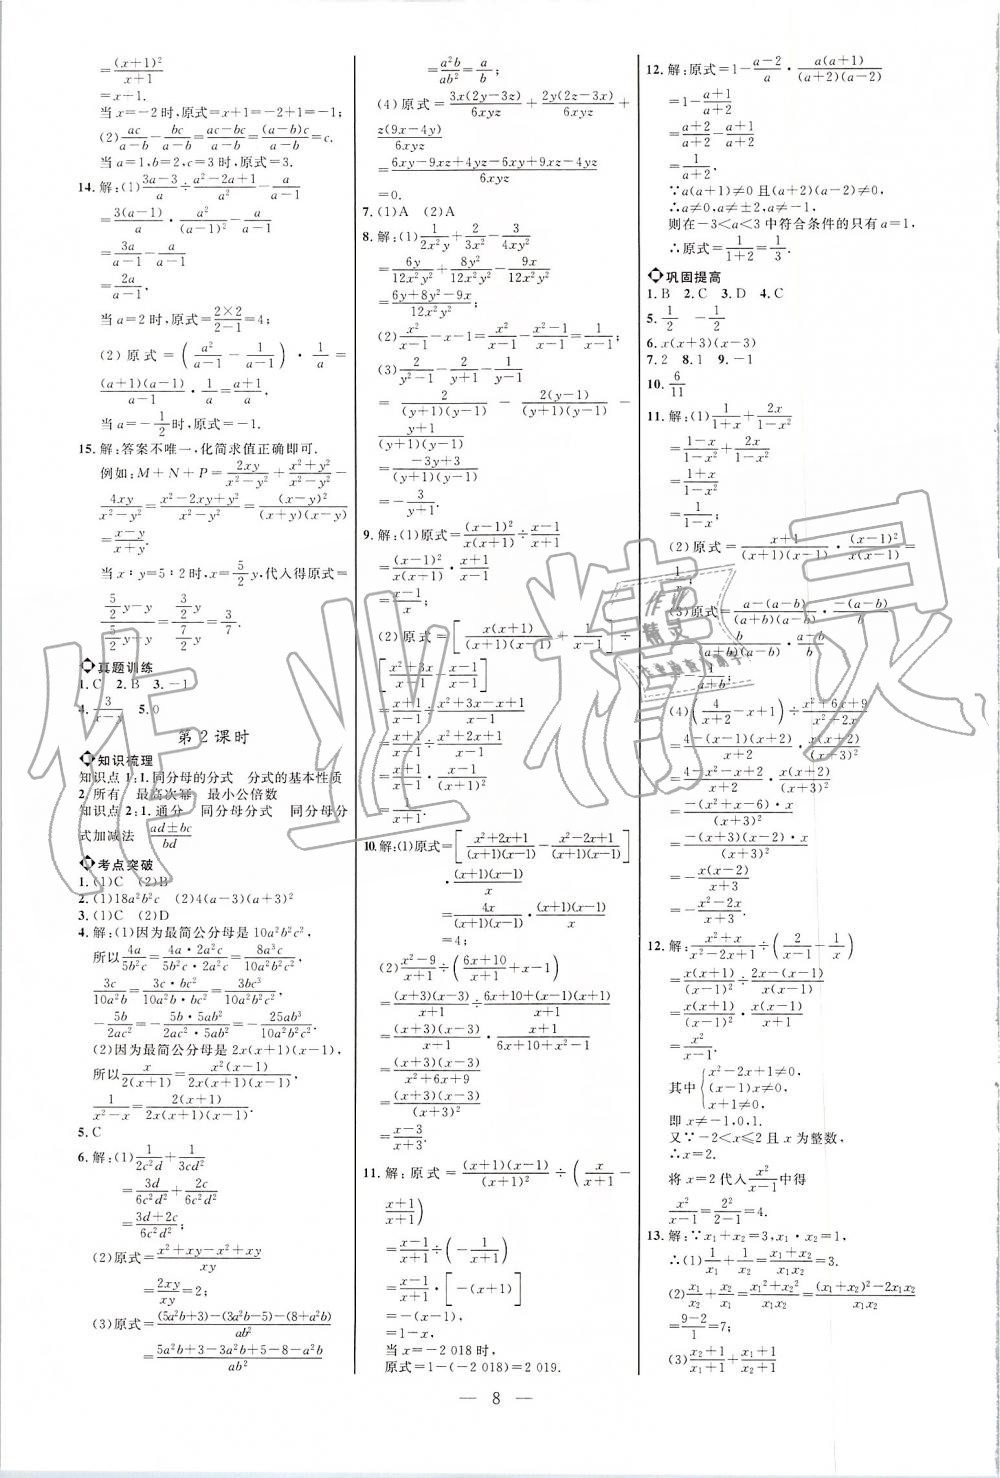 =\frac{(x+1)^2}{x+1}
=x+1.
当x=-2时,原式=x+1=-2+1=-1.
(2)\frac{ac}{a-b}-\frac{bc}{a-b}=\frac{ac-bc}{a-b}=\frac{(a-b)c}{a-b}=c.
当a=1,b=2,c=3时,原式=3.
14.解:(1)\frac{3a-3}{a}÷\frac{a^2-2a+1}{a^2}-\frac{a}{a-1}
=\frac{3(a-1)}{a}·\frac{a^2}{(a-1)^2}-\frac{a}{a-1}
=\frac{3a}{a-1}-\frac{a}{a-1}
=\frac{2a}{a-1}.
当a=2时,原式=\frac{2×2}{2-1}=4;
(2)原式=(\frac{a^2}{a-1}-\frac{1}{a-1})·\frac{1}{a}=
\frac{(a+1)(a-1)}{a-1}·\frac{1}{a}=\frac{a+1}{a}.
当a=-\frac{1}{2}时,原式=-1.
15.解:答案不唯一,化简求值正确即可.
例如:M+N+P=\frac{2xy}{x^2-y^2}+\frac{x^2+y^2}{x^2-y^2}-
\frac{4xy}{x^2-y^2}=\frac{x^2-2xy+y^2}{x^2-y^2}=\frac{(x-y)^2}{(x+y)(x-y)}
=\frac{x-y}{x+y}.
当x:y=5:2时,x=\frac{5}{2}y,代入得原式=
\frac{\frac{5}{2}y-y}{\frac{5}{2}y+y}=\frac{\frac{3}{2}y}{\frac{7}{2}y}=\frac{3}{7}.
真题训练
1.C 2.B 3.-1
4.\frac{3}{x-y} 5.0
第2课时
知识梳理
知识点1:1.同分母的分式 分式的基本性质
2.所有 最高次幂 最小公倍数
知识点2:1.通分 同分母分式 同分母分
式加减法 \frac{ad±bc}{bd}
考点突破
1.(1)C (2)B
2.(1)18a^2b^2c (2)4(a-3)(a+3)^2
3.(1)C (2)D
4.解:(1)因为最简公分母是10a^2b^2c^2,
所以\frac{4a}{5b^2c}=\frac{4a·2a^2c}{5b^2c·2a^2c}=\frac{8a^3c}{10a^2b^2c^2},
\frac{3c}{10a^2b}=\frac{3c·bc^2}{10a^2b·bc^2}=\frac{3bc^3}{10a^2b^2c^2},
-\frac{5b}{2ac^2}=-\frac{5b·5ab^2}{2ac^2·5ab^2}=-\frac{25ab^3}{10a^2b^2c^2}.
(2)因为最简公分母是2x(x+1)(x-1),
所以\frac{x}{2(x+1)}=\frac{x^2(x-1)}{2x(x+1)(x-1)},
\frac{1}{x^2-x}=\frac{2(x+1)}{2x(x+1)(x-1)}.
5.C
6.解:(1)\frac{1}{2c^2d}+\frac{1}{3cd^2}
=\frac{3d}{6c^2d^2}+\frac{2c}{6c^2d^2}
=\frac{3d+2c}{6c^2d^2};
(2)原式=\frac{x^2+xy-x^2+xy}{xy}
=\frac{2xy}{xy}=2;
(3)原式=\frac{(5a^2b+3)-(3a^2b-5)-(8+a^2b)}{ab^2}
=\frac{5a^2b+3-3a^2b+5-8-a^2b}{ab^2}
=\frac{a^2b}{ab^2}=\frac{a}{b};
(4)原式=\frac{3x(2y-3z)}{6xyz}+\frac{2y(2z-3x)}{6xyz}+
\frac{z(9x-4y)}{6xyz}
=\frac{6xy-9xz+4yz-6xy+9xz-4yz}{6xyz}
=0.
7.(1)A (2)A
8.解:(1)\frac{1}{2x^2y}+\frac{2}{3x^2}-\frac{3}{4xy^2}
=\frac{6y}{12x^2y^2}+\frac{8y^2}{12x^2y^2}-\frac{9x}{12x^2y^2}
=\frac{6y+8y^2-9x}{12x^2y^2};
(2)\frac{x^2}{x-1}-x-1=\frac{x^2}{x-1}-\frac{x^2-1}{x-1}=\frac{1}{x-1};
(3)\frac{2}{y^2-1}-\frac{2}{y+1}-\frac{1}{y-1}
=\frac{2}{(y+1)(y-1)}-\frac{2(y-1)}{(y+1)(y-1)}-
\frac{y+1}{(y+1)(y-1)}
=\frac{-3y+3}{(y+1)(y-1)}
=-\frac{3}{y+1}.
9.解:(1)原式=\frac{(x-1)^2}{x(x+1)}÷\frac{x-1}{x+1}
=\frac{(x-1)^2}{x(x+1)}·\frac{x+1}{x-1}
=\frac{x-1}{x};
(2)原式=[\frac{x(x+1)}{(x+1)(x-1)}+\frac{1}{x-1}]÷
[\frac{x^2+3x}{x-1}-\frac{x-1}{x-1}]
=\frac{x+1}{x-1}÷
=\frac{x+1}{x-1}·
=\frac{1}{x+1}.
10.解:(1)原式=[\frac{x^2+2x+1}{(x+1)(x-1)}-\frac{x^2-2x+1}{(x+1)(x-1)}]
·\frac{(x+1)(x-1)}{x}
=\frac{4x}{(x+1)(x-1)}·\frac{(x+1)(x-1)}{x}
=4;
(2)\frac{x^2-9}{x+1}÷(\frac{6x+10}{x+1}+x-1)
=\frac{(x+3)(x-3)}{x+1}÷\frac{6x+10+(x-1)(x+1)}{x+1}
=\frac{(x+3)(x-3)}{x+1}·\frac{x+1}{6x+10+x^2-1}
=\frac{(x+3)(x-3)}{x^2+6x+9}
=\frac{(x+3)(x-3)}{(x+3)^2}
=\frac{x-3}{x+3}.
11.解:原式=\frac{(x+1)(x-1)}{(x+1)^2}÷(\frac{x}{x+1}-
\frac{x+1}{x+1})
=\frac{x-1}{x+1}÷(-\frac{1}{x+1})
=\frac{x-1}{x+1}·[-(x+1)]
=-(x-1),
=1-x,
当x=-2 018时,
原式=1-(-2 018)=2 019.
12.解:原式=1-\frac{a-2}{a}·\frac{a(a+1)}{(a+2)(a-2)}
=1-\frac{a+1}{a+2}
=\frac{a+2}{a+2}-\frac{a+1}{a+2}
=\frac{1}{a+2}.
∵a(a+1)≠0且(a+2)(a-2)≠0,
∴a≠0,a≠±2,a≠-1.
则在-3<a<3中符合条件的只有a=1,
∴原式=\frac{1}{1+2}=\frac{1}{3}.
巩固提高
1.B 2.C 3.D 4.C
5.\frac{1}{2} -\frac{1}{2}
6.x(x+3)(x-3)
7.2 8.1 9.-1
10.\frac{6}{11}
11.解:(1)\frac{1}{1+x}+\frac{2x}{1-x^2}
=\frac{1-x}{1-x^2}+\frac{2x}{1-x^2}
=\frac{1+x}{1-x^2}
=\frac{1}{1-x};
(2)原式=\frac{x+1}{(x+1)(x-1)}·\frac{(x-1)^2}{x}=
(3)原式=\frac{a-(a-b)}{a(a-b)}·\frac{-(a-b)}{b}
=\frac{b}{a(a-b)}·\frac{-(a-b)}{b}
(4)(\frac{4}{x+2}-x+1)÷\frac{x^2+6x+9}{x^2+2x}
=\frac{4-(x-1)(x+2)}{x+2}·\frac{x(x+2)}{(x+3)^2}
=\frac{4-x^2-x+2}{x+2}·\frac{x(x+2)}{(x+3)^2}
=\frac{-(x^2+x-6)·x}{(x+3)^2}
=\frac{-(x+3)(x-2)·x}{(x+3)^2}
=-\frac{x(x-2)}{x+3}
=-\frac{x^2-2x}{x+3}.
12.解:\frac{x^2+x}{x^2-2x+1}÷(\frac{2}{x-1}-\frac{1}{x})
=\frac{x(x+1)}{(x-1)^2}÷\frac{2x-(x-1)}{x(x-1)}
=\frac{x(x+1)}{(x-1)^2}·\frac{x(x-1)}{x+1}
=\frac{x^2}{x-1}.
其中{x^2-2x+1≠0,
(x-1)x≠0,
x+1≠0,
即x≠-1,0,1.
又∵-2<x≤2且x为整数,
∴x=2.
将x=2代入\frac{x^2}{x-1}中得
\frac{x^2}{x-1}=\frac{2^2}{2-1}=4.
13.解:∵x_1+x_2=3,x_1·x_2=1,
∴(1)\frac{1}{x_1}+\frac{1}{x_2}=\frac{x_1+x_2}{x_1x_2}=3.
(2)\frac{x_1}{x_2}+\frac{x_2}{x_1}=\frac{x_1^2+x_2^2}{x_1x_2}=\frac{(x_1+x_2)^2-2x_1x_2}{x_1x_2}
=\frac{9-2}{1}=7;
(3)\frac{x_2+1}{x_1+1}+\frac{x_1+1}{x_2+1}
— 8 —
作业精灵